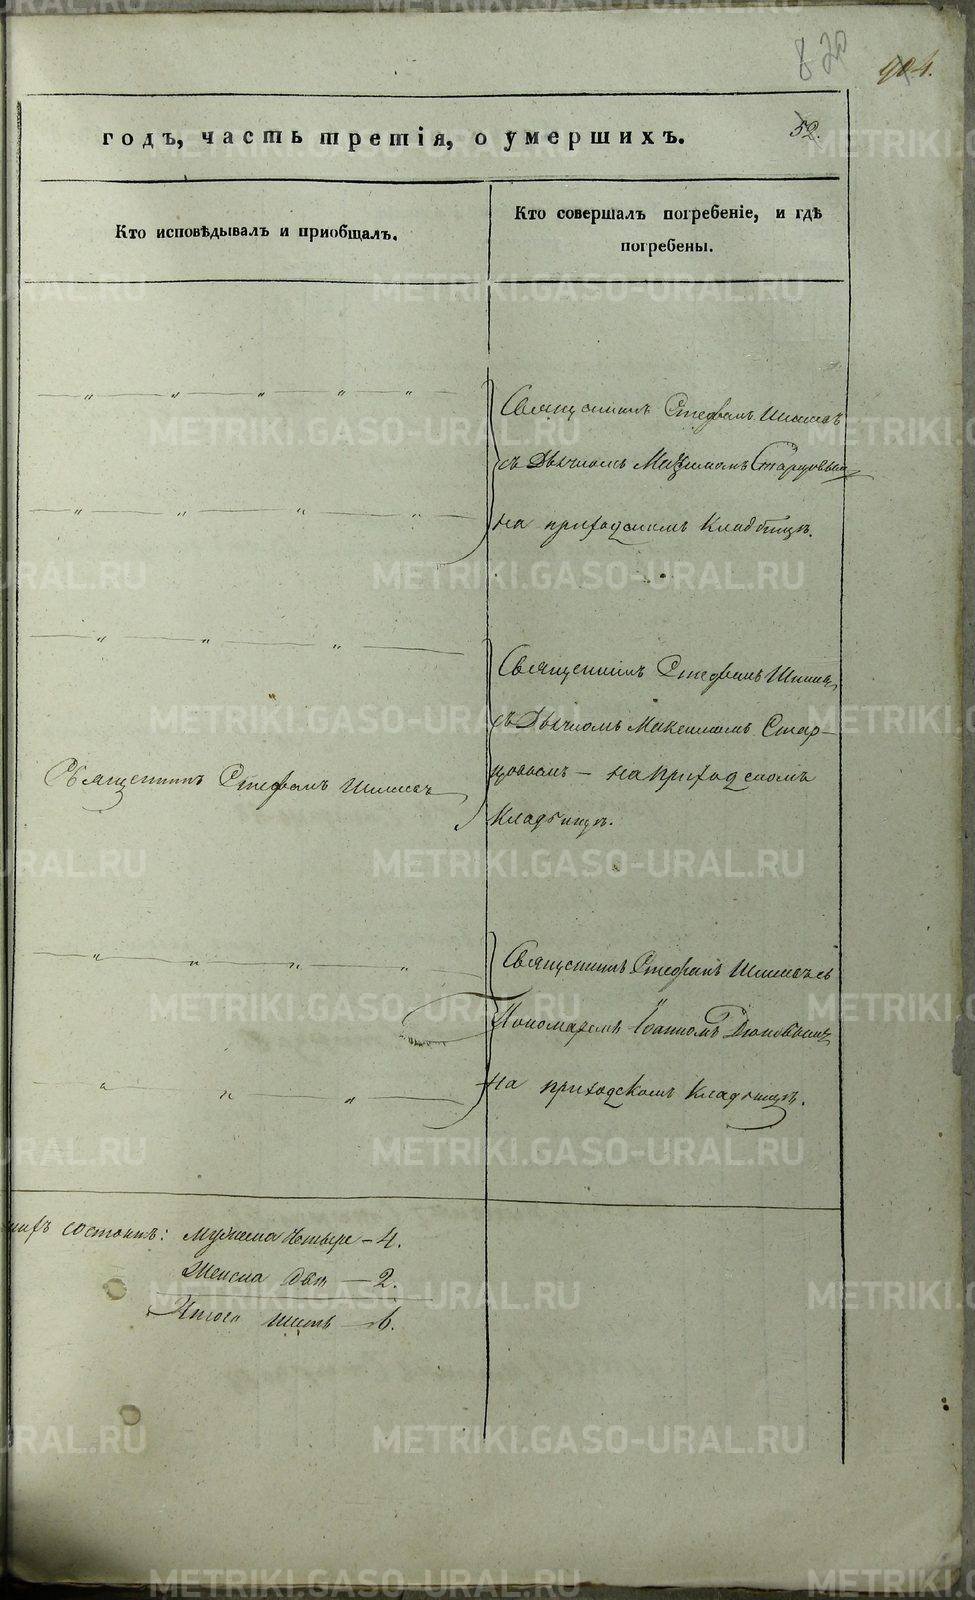 820
904.
годъ, часть третія, о умершихъ.
52.
Кто исповѣдывалъ и приобщалъ.
Кто совершалъ погребеніе, и гдѣ
погребены.
Священникъ Стефанъ
съ Дьячкомъ Максимомъ Старцовымъ
на приходскомъ Кладбищѣ.
Священникъ Стефанъ
съ Дьячкомъ Максимомъ Стар-
цовымъ - на приходскомъ
Кладбищѣ.
Священникъ Стефанъ
Священникъ Стефанъ съ
Пономаремъ Іоанномъ
на приходскомъ Кладбищѣ.
состоитъ: Мужеска четыре - 4.
Женска двѣ - 2.
Итого шесть - 6.
METRIKI.GASO-URAL.RU